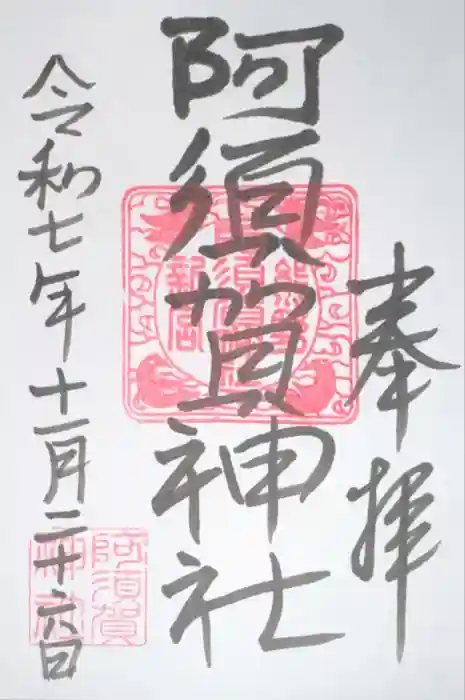 奉拝
阿須賀神社
熊野
阿須賀神社
新宮
令和七年十一月二十六日
阿須賀
神社